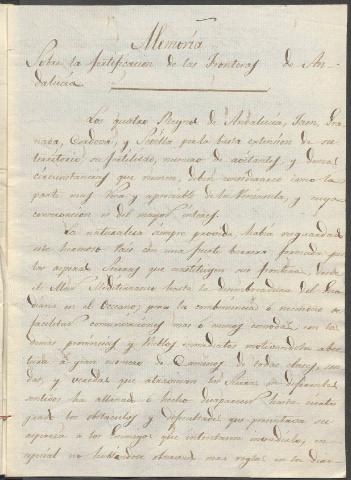 Memoria
Sobre la fortificacion de las Fronteras de An-
dalucia
Los quatro Reynos de Andalucia, Jaen, Gra-
nada, Cordova, y Sevilla por la basta extension de su
territorio su fertilidad, numero de avitantes y demas
circunstancias que reunen, deben considerarse como la
parte mas rica y apreciable de la Peninsula, y cuya
conservacion es del mayor interes.
La naturaleza siempre provida habia resguardado
este hermoso Pais con una fuerte barrera formada por
las asperas Sierras que constituyen su frontera desde
el Mar Mediterraneo hasta la desembocadura del Gua
diana en el Occeano; pero la combeniencia ó necesidad de
facilitar comunicaciones mas o menos comodas con las
demas provincias y Pueblos inmediatos motivando la aber
tura de gran numero de Caminos de todas clases, sen
das, y veredas que atraviesan las Sierras en diferentes
sentidos ha allanado ó hecho desaparecer hasta cierto
grado los obstaculos y dificultades que presentava su
aspereza a los Enemigos que intentaran invadirla, en
especial no hallandose obras mas reglas en los